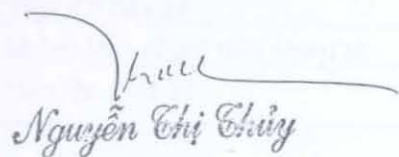 Nguyễn Thị Thủy